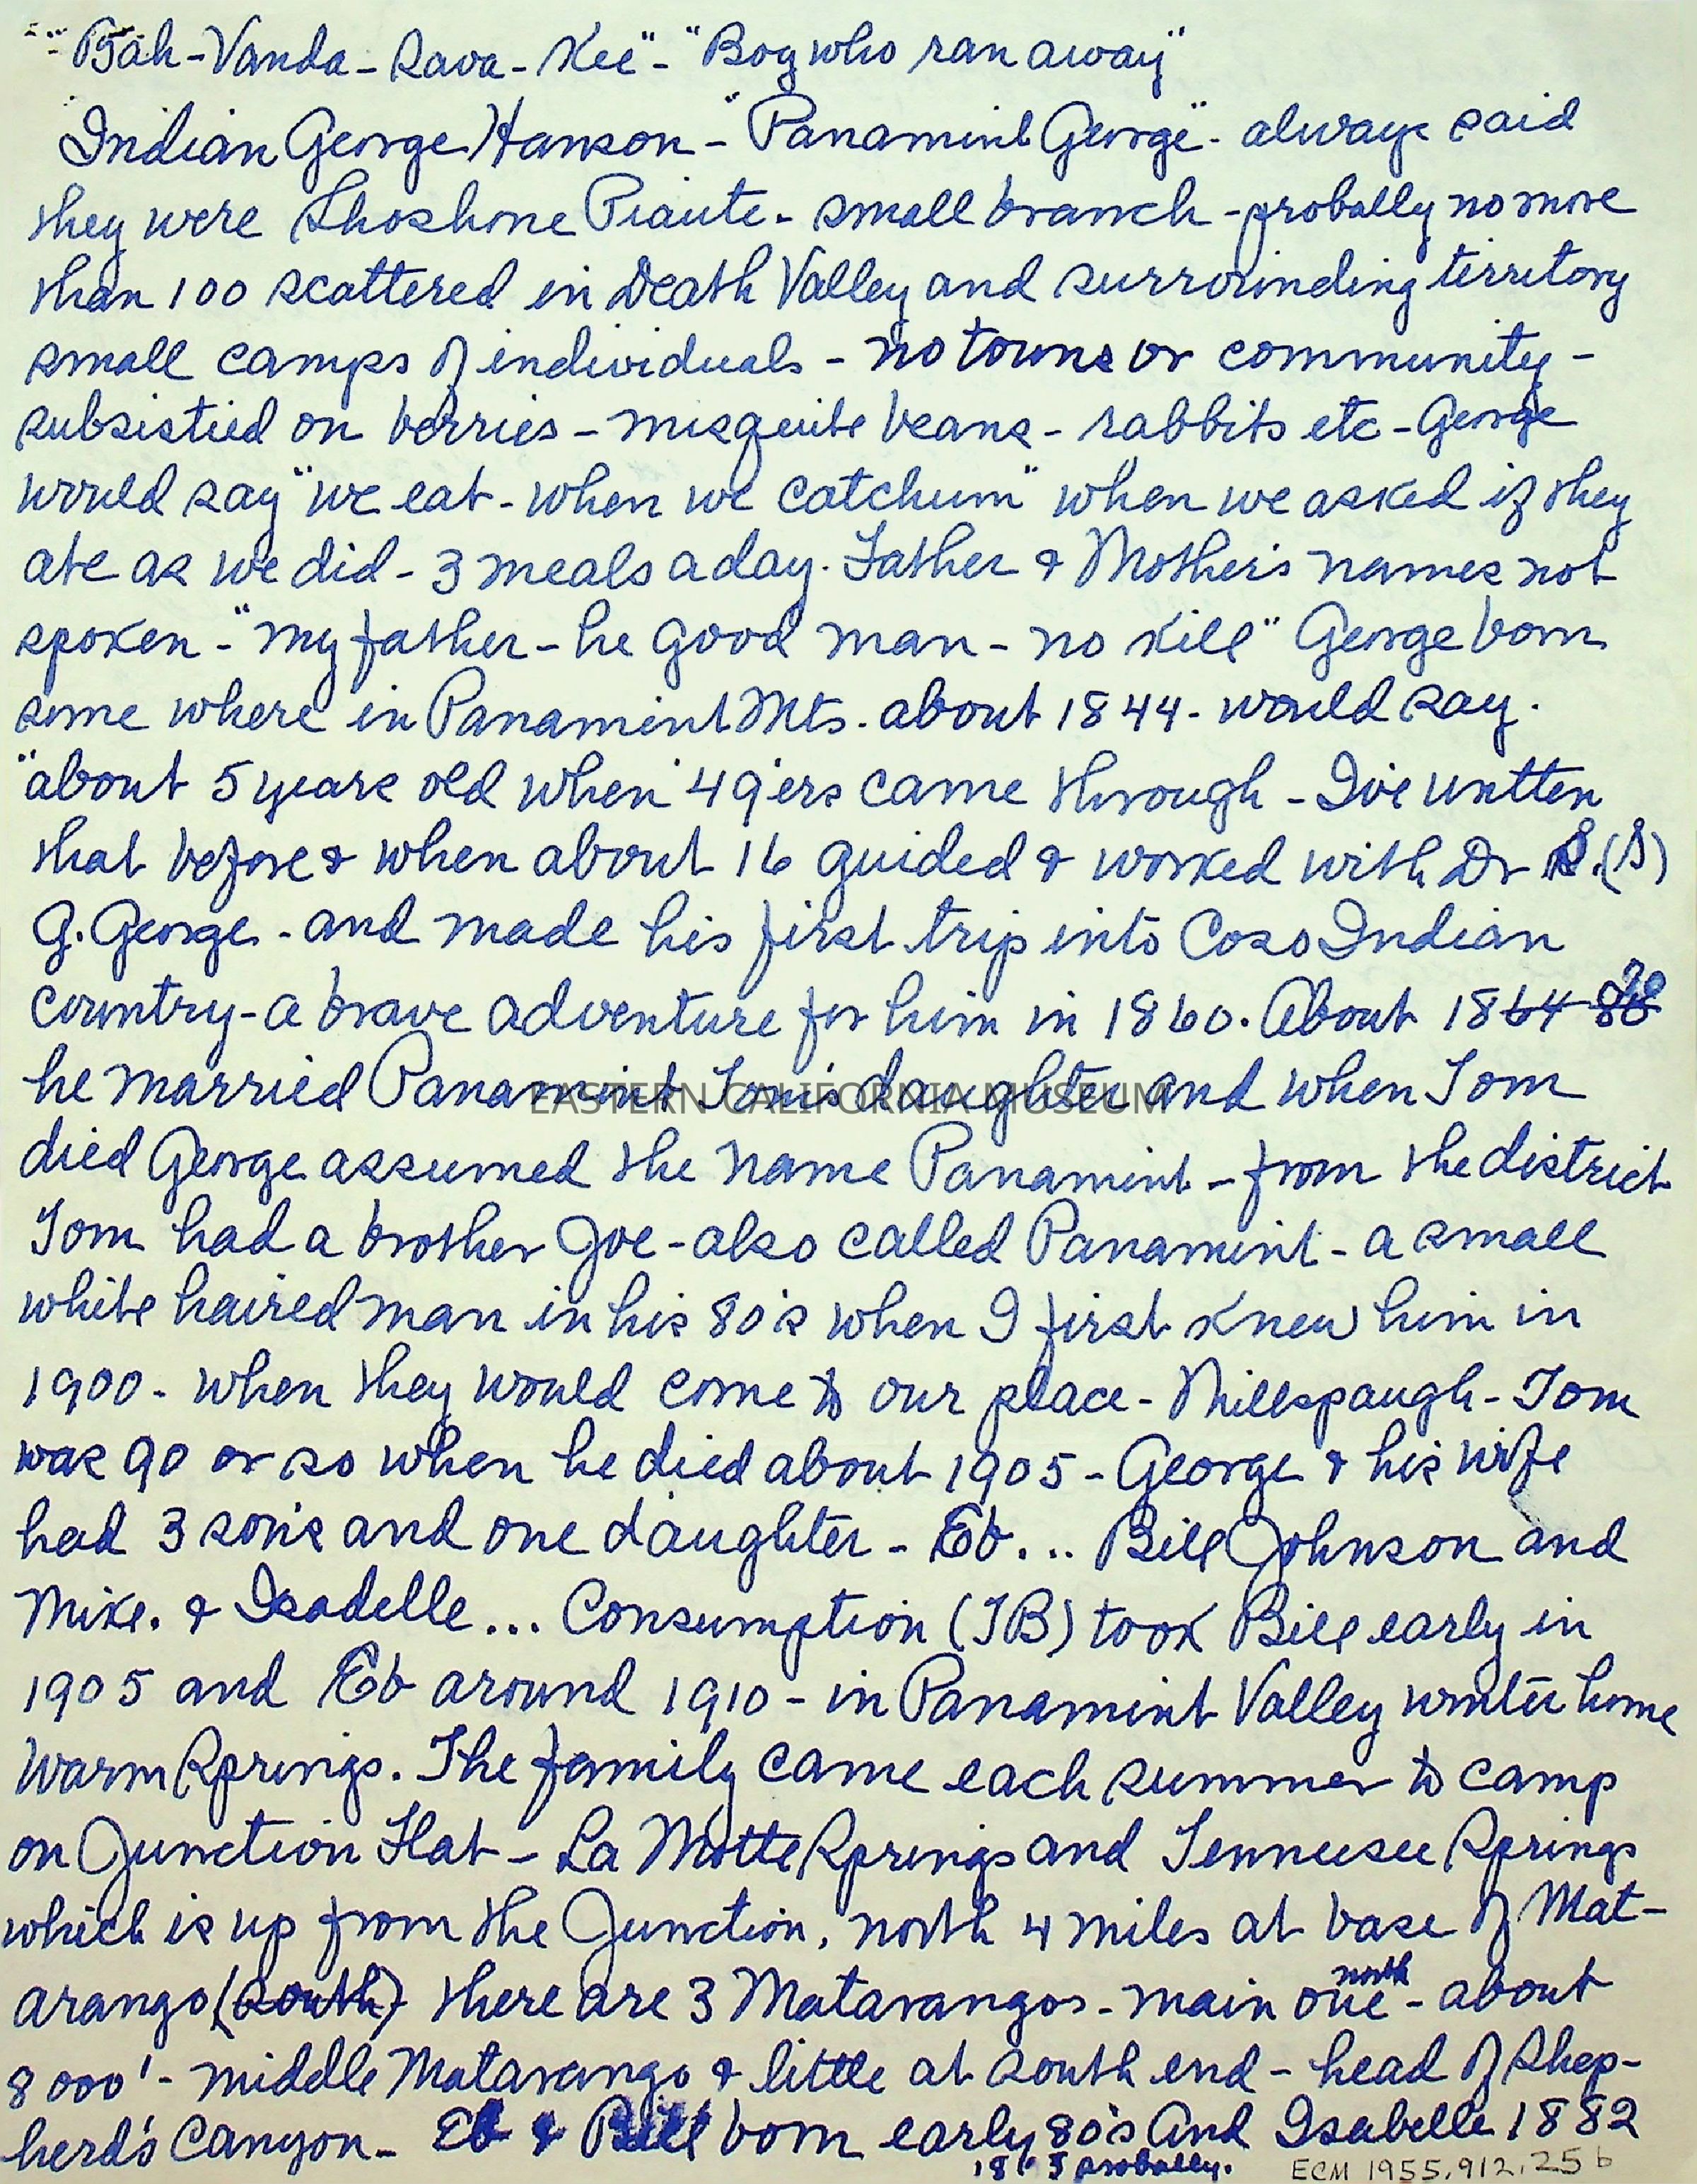 "Bah-Vanda-Sava-Kee" - "Boy who ran away"
Indian George Hanson - "Panamint George" - always said
they were Shoshone Piaute - small branch - probally no more
than 100 scattered in Death Valley and surrounding territory
small camps of individuals - no towns or community -
subsistied on berries - misquite beans - rabbits etc - George
would say "we eat - when we catchum" when we asked if they
ate as we did - 3 meals a day. Father & Mother's names not
spoken - "my father - he good man - no kill" George born
some where in Panamint Mts. about 1844 - would say.
"about 5 years old when '49'ers came through - I've written
that before & when about 16 guided & worked with Dr S. (S)
G. George - and made his first trip into Coso Indian
Country - a brave adventure for him in 1860. About 1864
he married Panamint Tom's daughter and when Tom
died George assumed the name Panamint - from the district
Tom had a brother Joe - also called Panamint - a small
white haired man in his 80's when I first knew him in
1900 - when they would come to our place - Millspaugh - Tom
was 90 or so when he died about 1905 - George & his wife
had 3 son's and one daughter - Eb... Bill Johnson and
Mike. & Isadelle... Consumption (TB) took Bill early in
1905 and Eb around 1910 - in Panamint Valley winter home
Warm Springs. The family came each summer to camp
on Junction Flat - La Motte Springs and Tennessee Springs
which is up from the Junction, north 4 miles at base of Mat-
arango (south) there are 3 Matarangos - main one north - about
8000' - middle Matarango & little at south end - head of Shep-
herd's Canyon - Eb & Bill born early 80's And Isabelle 1882
probally.
ECM 1955.912.25b
EASTERN CALIFORNIA MUSEUM